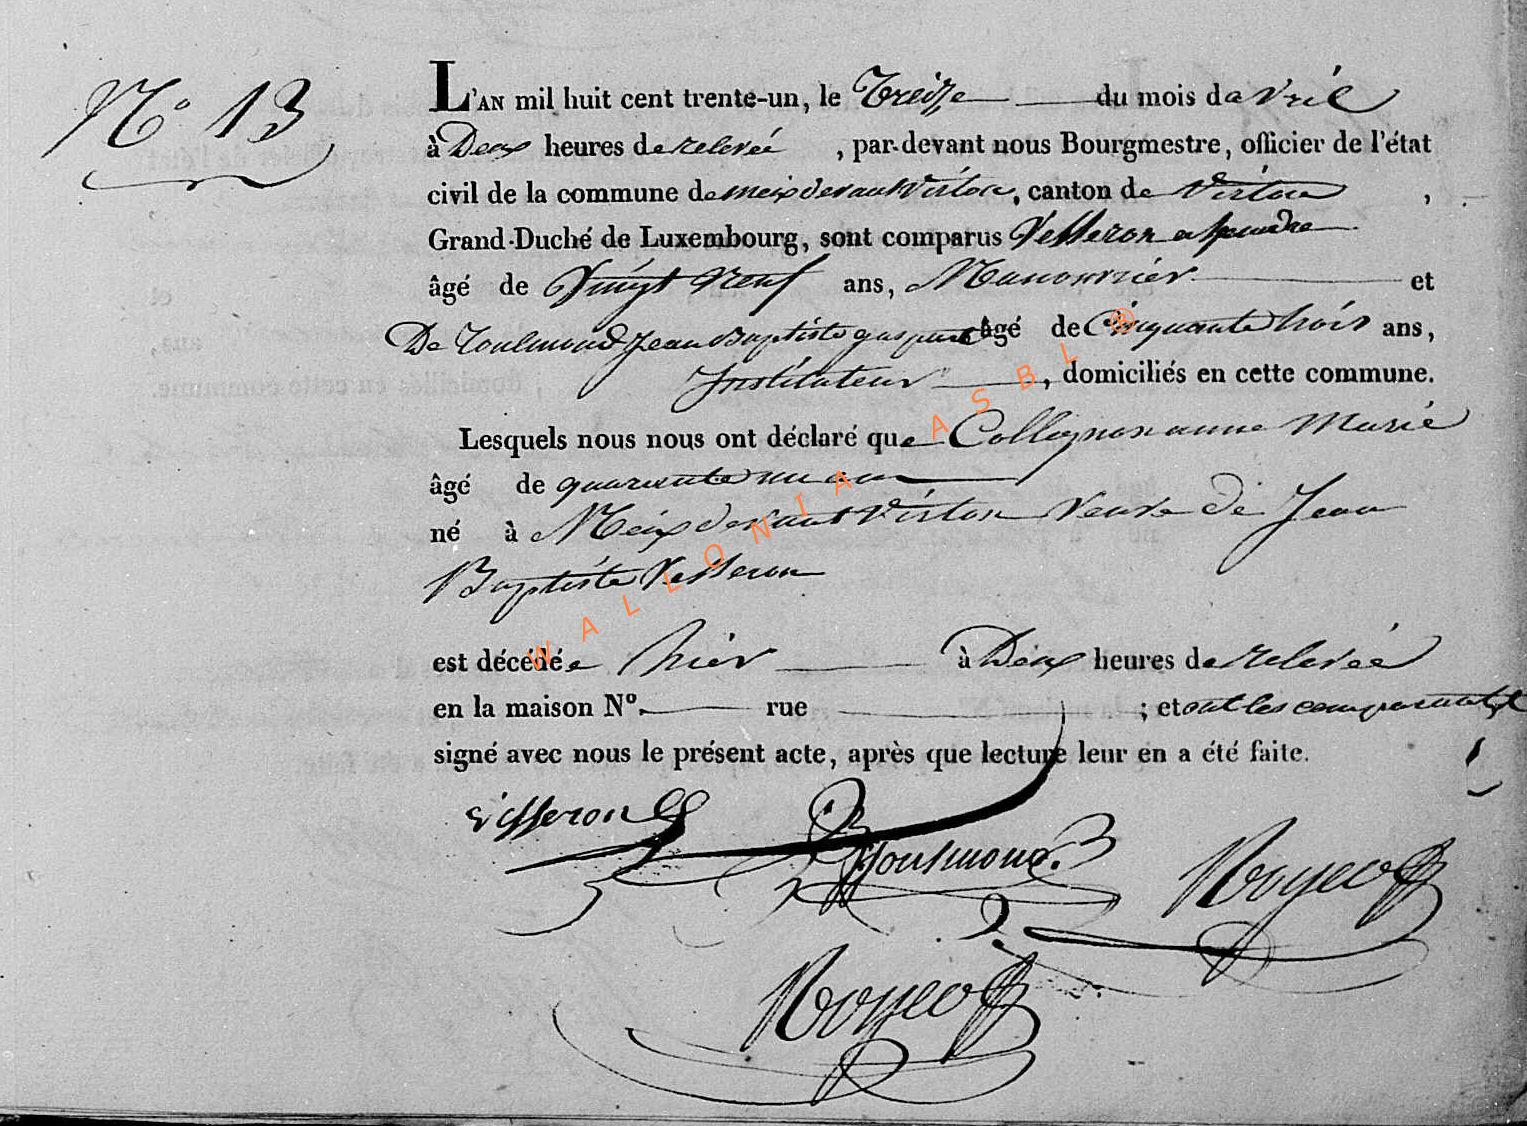 N° 13
L'AN mil huit cent trente-un, le Treize du mois d'avril
à Deux heures de relevée, par-devant nous Bourgmestre, officier de l'état
civil de la commune de meix devant Virton, canton de Virton,
Grand-Duché de Luxembourg, sont comparus Vesseron
âgé de Vingt Neuf ans, Manouvrier et
De Toulmond Jean Baptiste gaspard âgé de Cinquante trois ans,
Instituteur, domiciliés en cette commune.
Lesquels nous nous ont déclaré que Collignon anne Marie
âgé de quarante un ans
né à Meix devant Virton veuve de Jean
Baptiste Vesseron
est décédée hier à Deux heures de relevée
en la maison N°. rue ; et ont les comparants
signé avec nous le présent acte, après que lecture leur en a été faite.
Vesseron Toulmond
WALLONIA ASBL ®